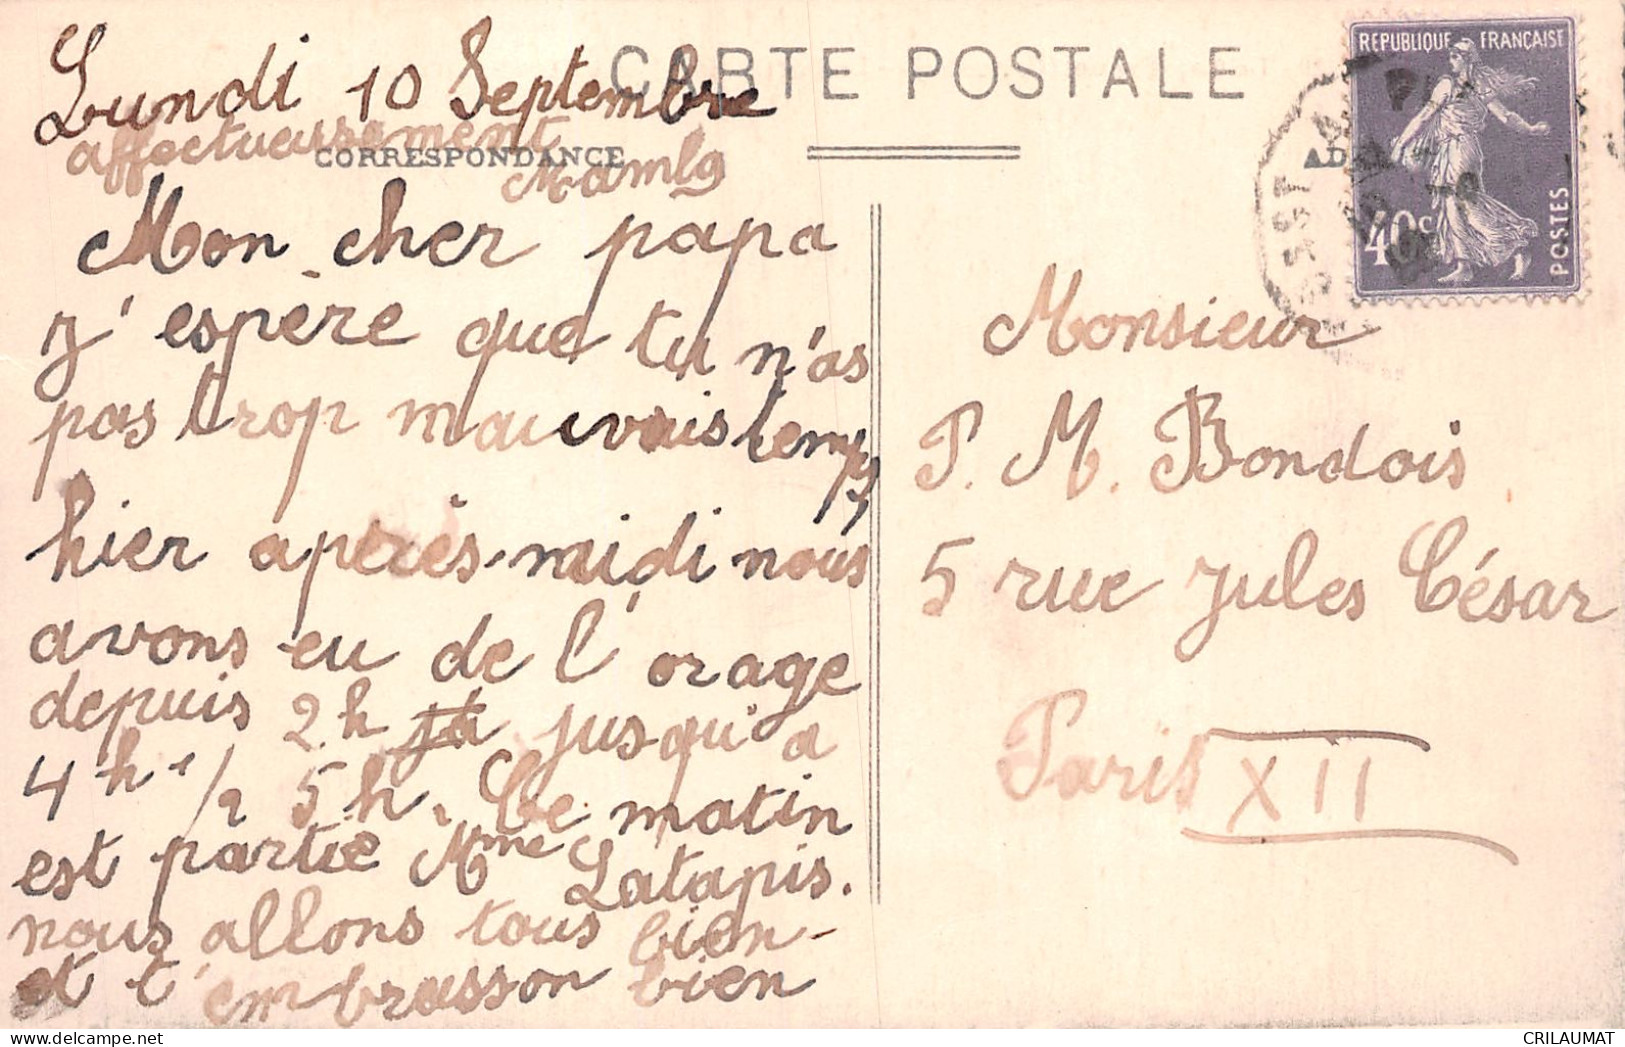 CARTE POSTALE
CORRESPONDANCE
Lundi 10 Septembre
affectueusement
Mon cher papa
j'espère que tu n'as
pas trop mauvais temps,
hier après-midi nous
avons eu de l'orage
depuis 2h ja jusqu'a
4h 1/2 5h. Ce matin
est partie Mme Latapis.
nous allons tous bien
et t'embrasson bien
REPUBLIQUE FRANÇAISE
40c
POSTES
Monsieur
P. M. Bondois
5 rue Jules César
Paris XII
CRILAUMAT